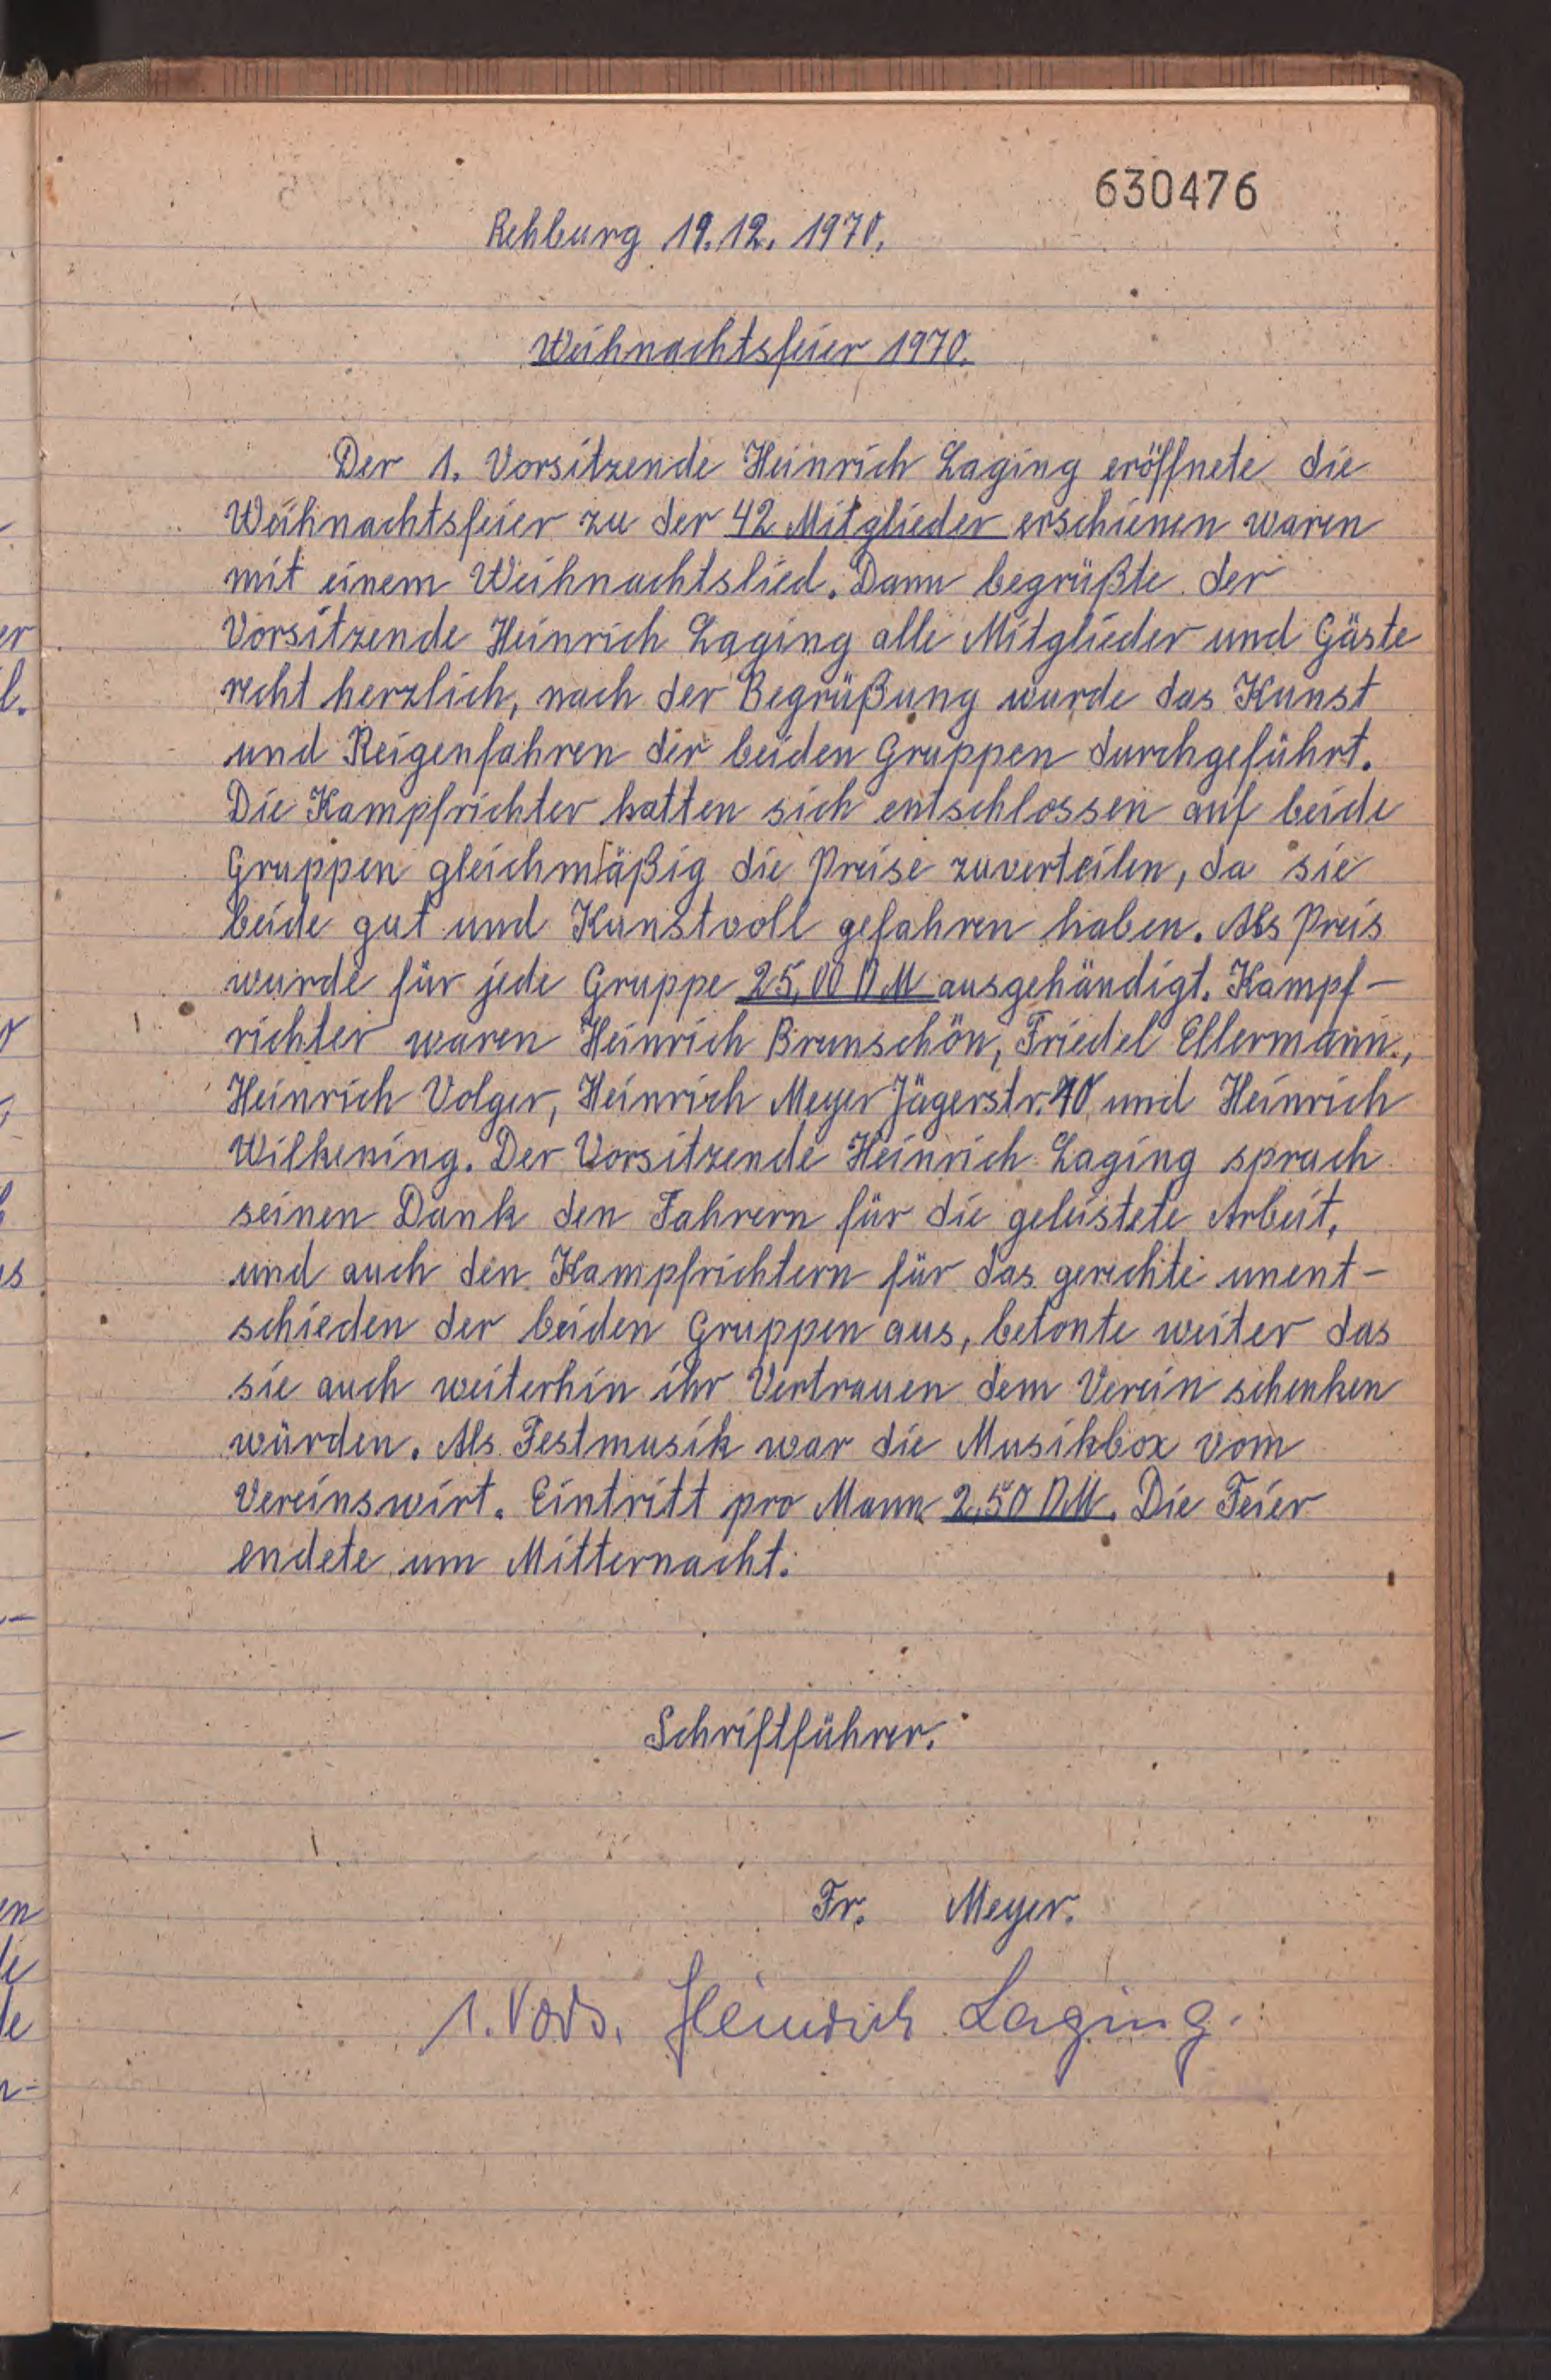 630476
Rehburg 19.12. 1970.
Weihnachtsfeier 1970.
Der 1. Vorsitzende Heinrich Laging eröffnete die
Weihnachtsfeier zu der 42 Mitglieder erschienen waren
mit einem Weihnachtslied. Dann begrüßte der
Vorsitzende Heinrich Laging alle Mitglieder und Gäste
recht herzlich, nach der Begrüßung wurde das Kunst
und Reigenfahren der beiden Gruppen durchgeführt.
Die Kampfrichter hatten sich entschlossen auf beide
Gruppen gleichmäßig die Preise zuverteilen, da sie
beide gut und Kunstvoll gefahren haben. Als Preis
wurde für jede Gruppe 25,00 DM ausgehändigt. Kampf-
richter waren Heinrich Brunschön, Friedel Ellermann.,
Heinrich Volger, Heinrich Meyer Jägerstr. 40 und Heinrich
Wilkening. Der Vorsitzende Heinrich Laging sprach
seinen Dank den Fahrern für die geleistete Arbeit,
und auch den Kampfrichtern für das gerechte unent-
schieden der beiden Gruppen aus, betonte weiter das
sie auch weiterhin ihr Vertrauen dem Verein schenken
würden. Als Festmusik war die Musikbox vom
Vereinswirt. Eintritt pro Mann 2,50 DM. Die Feier
endete um Mitternacht.
Schriftführer.
Fr. Meyer.
1. Vors. Heinrich Laging.